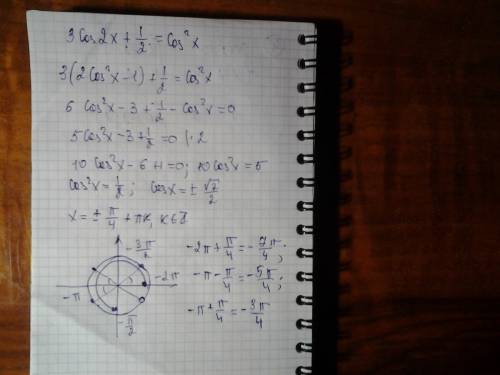 3cos2x + 1/2 = cos²x
3(2cos²x - 1) + 1/2 = cos²x
6 cos²x - 3 + 1/2 - cos²x = 0
5cos²x - 3 + 1/2 = 0 | · 2
10cos²x - 6 + 1 = 0; 10cos²x = 5
cos²x = 1/2; cosx = ± √2/2
x = ± π/4 + πk, k∈Z
- 3π/2
- 2π
- π
- π/2
-2π + π/4 = - 7π/4;
-π - π/4 = - 5π/4;
-π + π/4 = - 3π/4